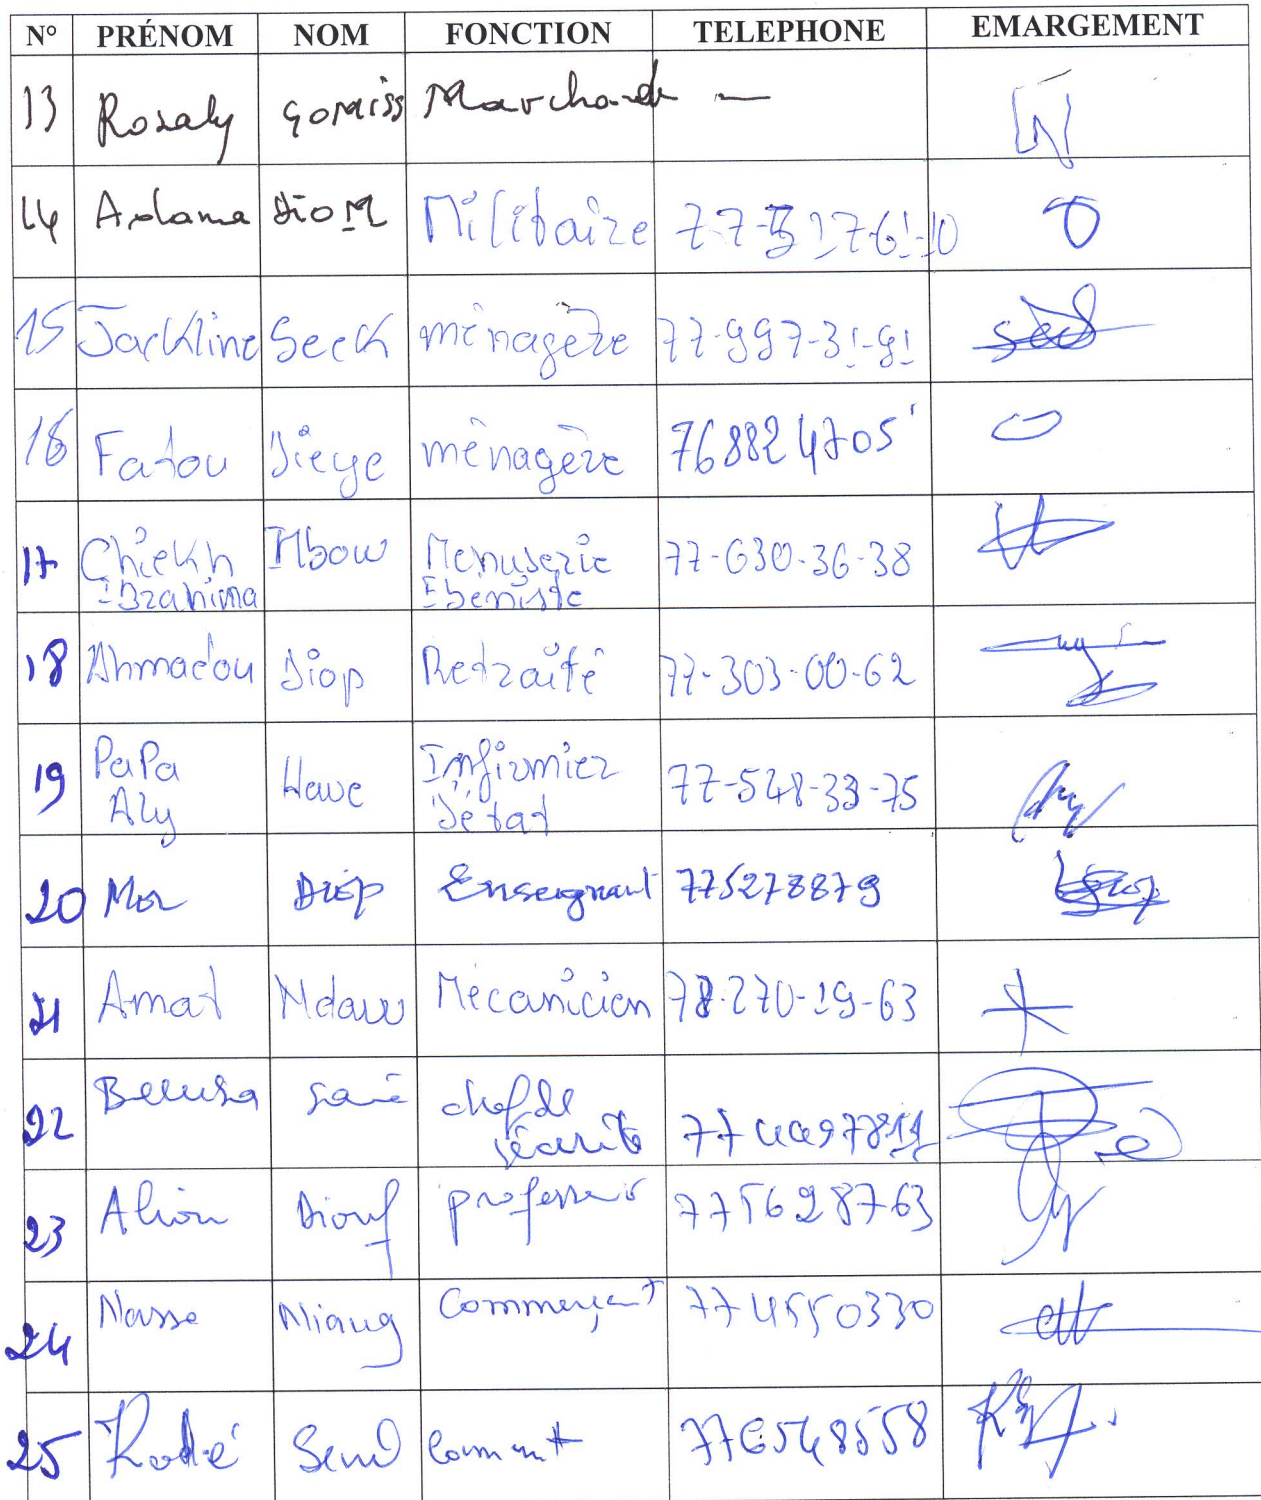 N° PRÉNOM NOM FONCTION TELEPHONE EMARGEMENT
13 Rosaly Gomiss Marchande —
14 Adama Diom Militaire 77-517-61-10
15 Jackline Seck ménagère 77-997-31-91
16 Fatou Dieye ménagère 768824705
17 Chiekh Ibrahima Mbow Menuserie Ebéniste 77-630-36-38
18 Ahmadou Diop Retraité 77-303-00-62
19 PaPa Aly Hawe Infirmier D'état 77-548-33-75
20 Mor Diop Enseignant 775278879
21 Amat Ndaw Mécanicien 78-270-19-63
22 Sané chef de sécurité
23 Alion Diouf professeur 775628763
24 Masse Niang Commerçant 774550330
25 776548558